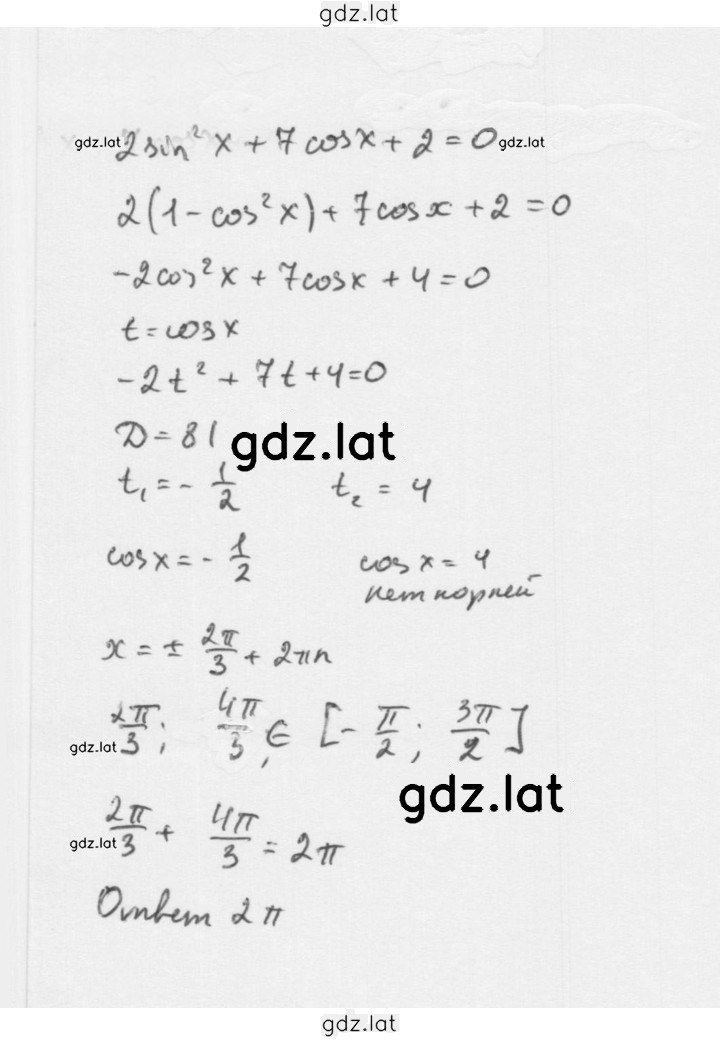 gdz.lat
gdz.lat 2 sin² x + 7 cos x + 2 = 0 gdz.lat
2(1 - cos² x) + 7cos x + 2 = 0
-2cos² x + 7cos x + 4 = 0
t = cos x
-2t² + 7t + 4 = 0
D = 81 gdz.lat
t₁ = - 1/2 t₂ = 4
cos x = - 1/2 cos x = 4
нет корней
x = ± 2π/3 + 2πn
gdz.lat 2π/3; 4π/3, ∈ [- π/2; 3π/2]
gdz.lat
gdz.lat 2π/3 + 4π/3 = 2π
Ответ 2π
gdz.lat